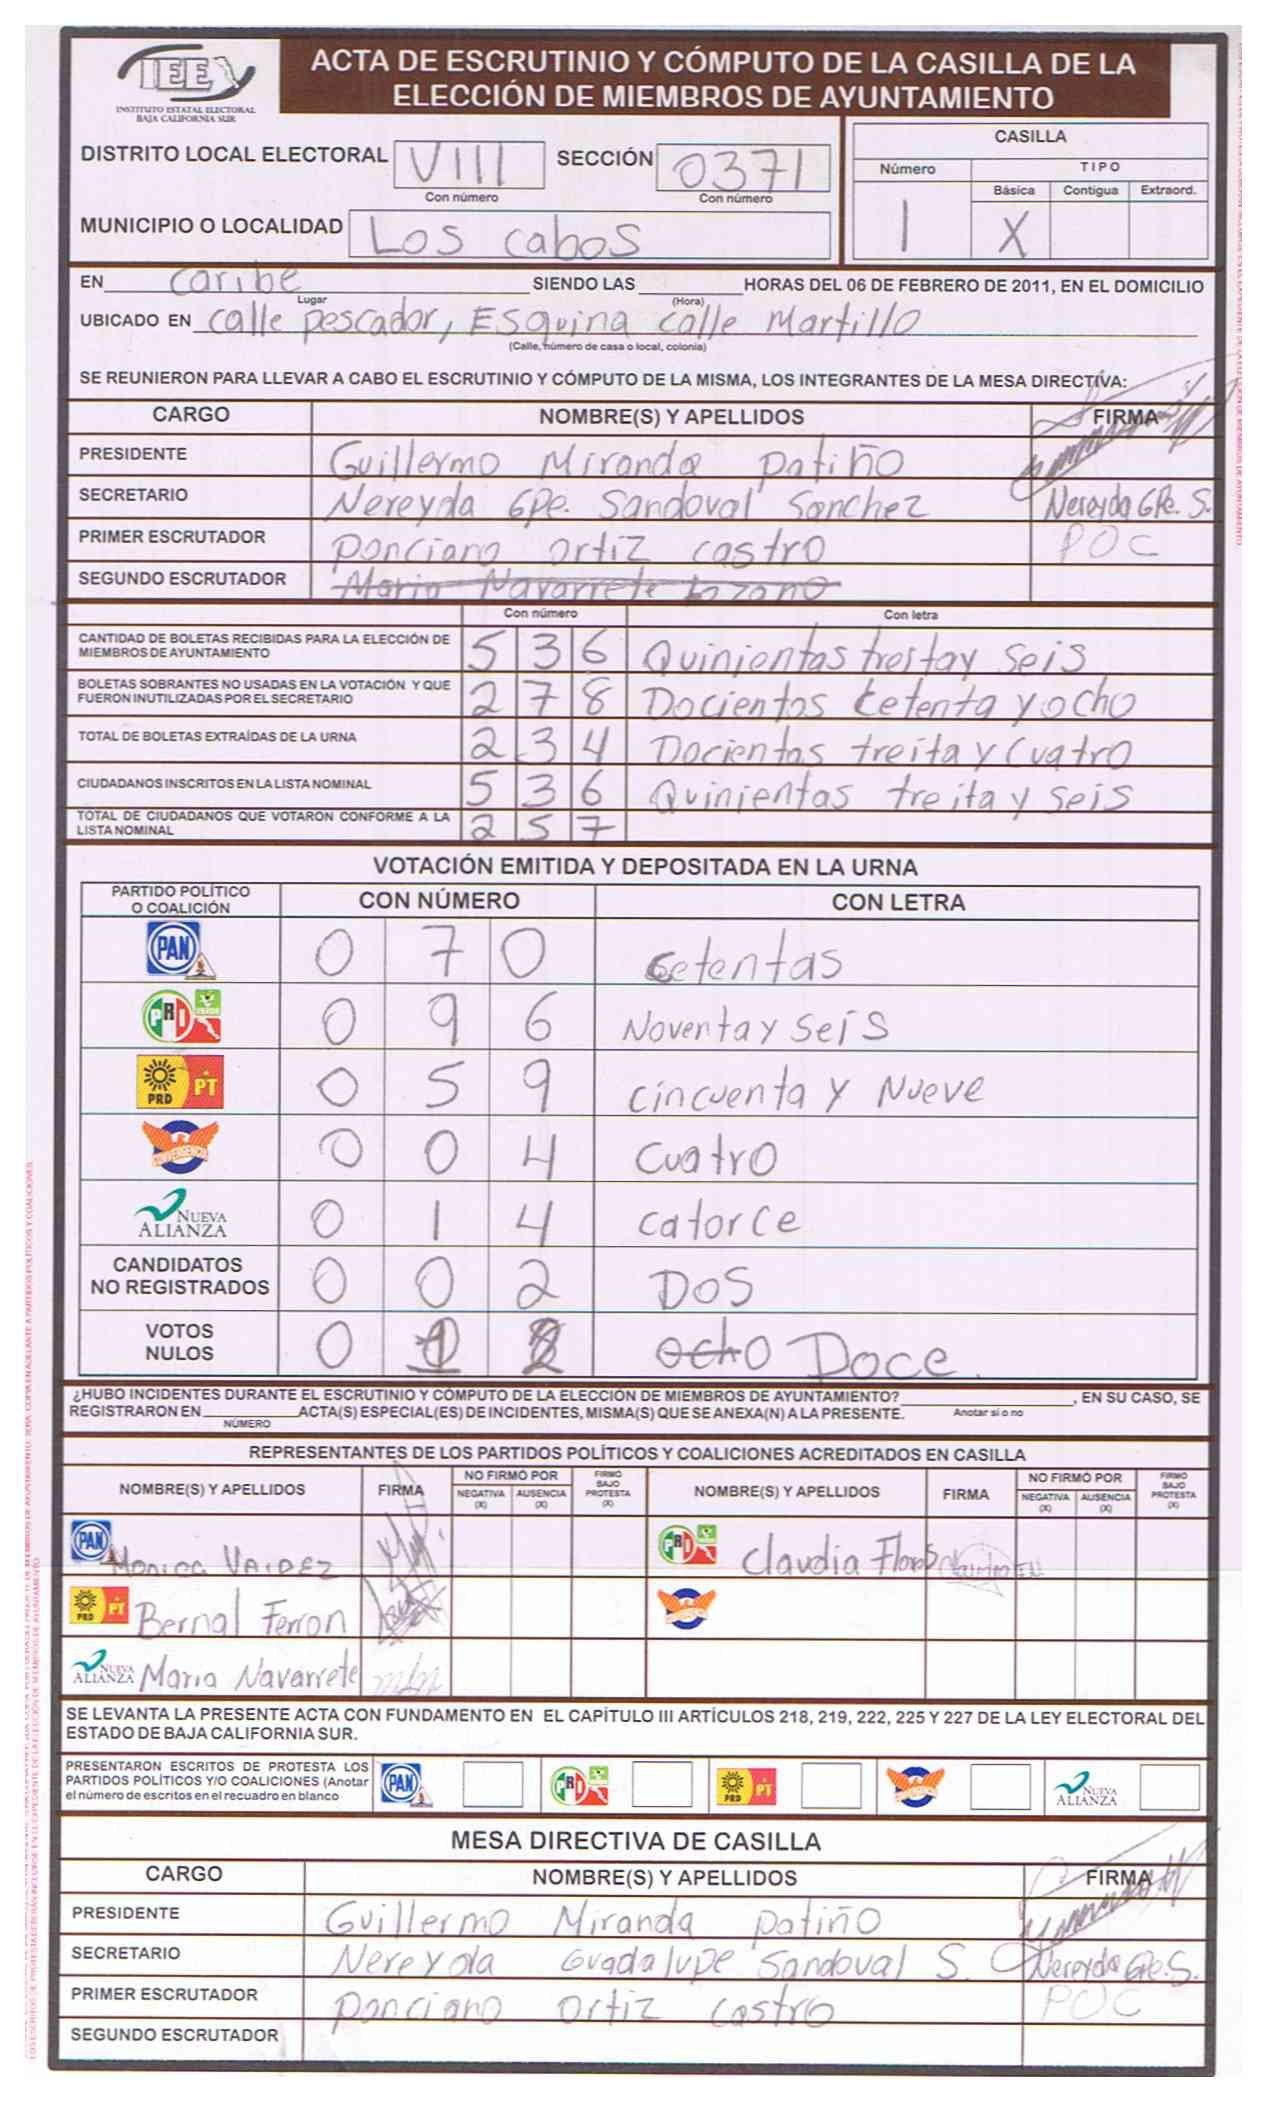 IEE
INSTITUTO ESTATAL ELECTORAL
BAJA CALIFORNIA SUR
ACTA DE ESCRUTINIO Y CÓMPUTO DE LA CASILLA DE LA
ELECCIÓN DE MIEMBROS DE AYUNTAMIENTO
DISTRITO LOCAL ELECTORAL VIII SECCIÓN 0371
Con número Con número
MUNICIPIO O LOCALIDAD Los cabos
CASILLA
Número TIPO
Básica Contigua Extraord.
1 X
EN caribe SIENDO LAS HORAS DEL 06 DE FEBRERO DE 2011, EN EL DOMICILIO
Lugar (Hora)
UBICADO EN calle pescador, Esquina calle Martillo
(Calle, número de casa o local, colonia)
SE REUNIERON PARA LLEVAR A CABO EL ESCRUTINIO Y CÓMPUTO DE LA MISMA, LOS INTEGRANTES DE LA MESA DIRECTIVA:
CARGO NOMBRE(S) Y APELLIDOS FIRMA
PRESIDENTE Guillermo Miranda Patiño
SECRETARIO Nereyda GPe. Sandoval Sanchez Nereyda GPe. S.
PRIMER ESCRUTADOR Ponciano Ortiz castro POC
SEGUNDO ESCRUTADOR Maria Navarrete Lozano
Con número Con letra
CANTIDAD DE BOLETAS RECIBIDAS PARA LA ELECCIÓN DE
MIEMBROS DE AYUNTAMIENTO 5 3 6 Quinientas treitay seis
BOLETAS SOBRANTES NO USADAS EN LA VOTACIÓN Y QUE
FUERON INUTILIZADAS POR EL SECRETARIO 2 7 8 Docientos cetenta y ocho
TOTAL DE BOLETAS EXTRAÍDAS DE LA URNA 2 3 4 Docientas treita y cuatro
CIUDADANOS INSCRITOS EN LA LISTA NOMINAL 5 3 6 Quinientas treita y seis
TOTAL DE CIUDADANOS QUE VOTARON CONFORME A LA
LISTA NOMINAL 2 5 7
VOTACIÓN EMITIDA Y DEPOSITADA EN LA URNA
PARTIDO POLÍTICO
O COALICIÓN CON NÚMERO CON LETRA
PAN 0 7 0 cetentas
PRI VERDE 0 9 6 Noventa y seis
PRD PT 0 5 9 cincuenta y Nueve
CONVERGENCIA 0 0 4 cuatro
NUEVA ALIANZA 0 1 4 catorce
CANDIDATOS
NO REGISTRADOS 0 0 2 Dos
VOTOS
NULOS 0 1 2 ocho Doce
¿HUBO INCIDENTES DURANTE EL ESCRUTINIO Y CÓMPUTO DE LA ELECCIÓN DE MIEMBROS DE AYUNTAMIENTO? , EN SU CASO, SE
REGISTRARON EN ACTA(S) ESPECIAL(ES) DE INCIDENTES, MISMA(S) QUE SE ANEXA(N) A LA PRESENTE. Anotar sí o no
NÚMERO
REPRESENTANTES DE LOS PARTIDOS POLÍTICOS Y COALICIONES ACREDITADOS EN CASILLA
NOMBRE(S) Y APELLIDOS FIRMA NO FIRMÓ POR NEGATIVA (X) AUSENCIA (X) FIRMÓ BAJO PROTESTA (X) NOMBRE(S) Y APELLIDOS FIRMA NO FIRMÓ POR NEGATIVA (X) AUSENCIA (X) FIRMÓ BAJO PROTESTA (X)
PAN Monica Valdez PRI Claudia Flores
PRD PT Bernal Ferron
NUEVA ALIANZA Maria Navarrete
SE LEVANTA LA PRESENTE ACTA CON FUNDAMENTO EN EL CAPÍTULO III ARTÍCULOS 218, 219, 222, 225 Y 227 DE LA LEY ELECTORAL DEL
ESTADO DE BAJA CALIFORNIA SUR.
PRESENTARON ESCRITOS DE PROTESTA LOS
PARTIDOS POLÍTICOS Y/O COALICIONES (Anotar
el número de escritos en el recuadro en blanco
PAN PRI PRD PT NUEVA ALIANZA
MESA DIRECTIVA DE CASILLA
CARGO NOMBRE(S) Y APELLIDOS FIRMA
PRESIDENTE Guillermo Miranda Patiño
SECRETARIO Nereyda Guadalupe Sandoval S. Nereyda GPe.S.
PRIMER ESCRUTADOR Ponciano Ortiz castro POC
SEGUNDO ESCRUTADOR